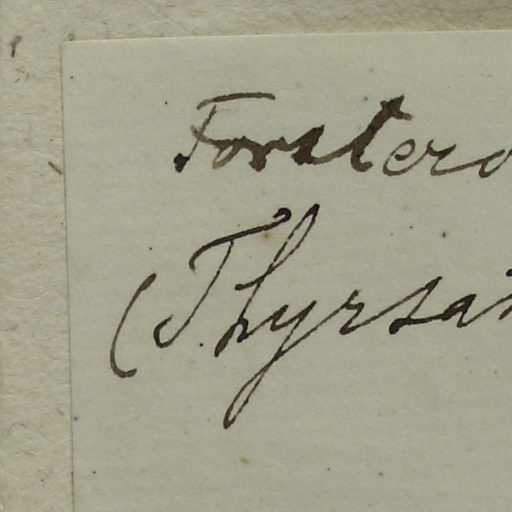 Forstero
(Thyrsan